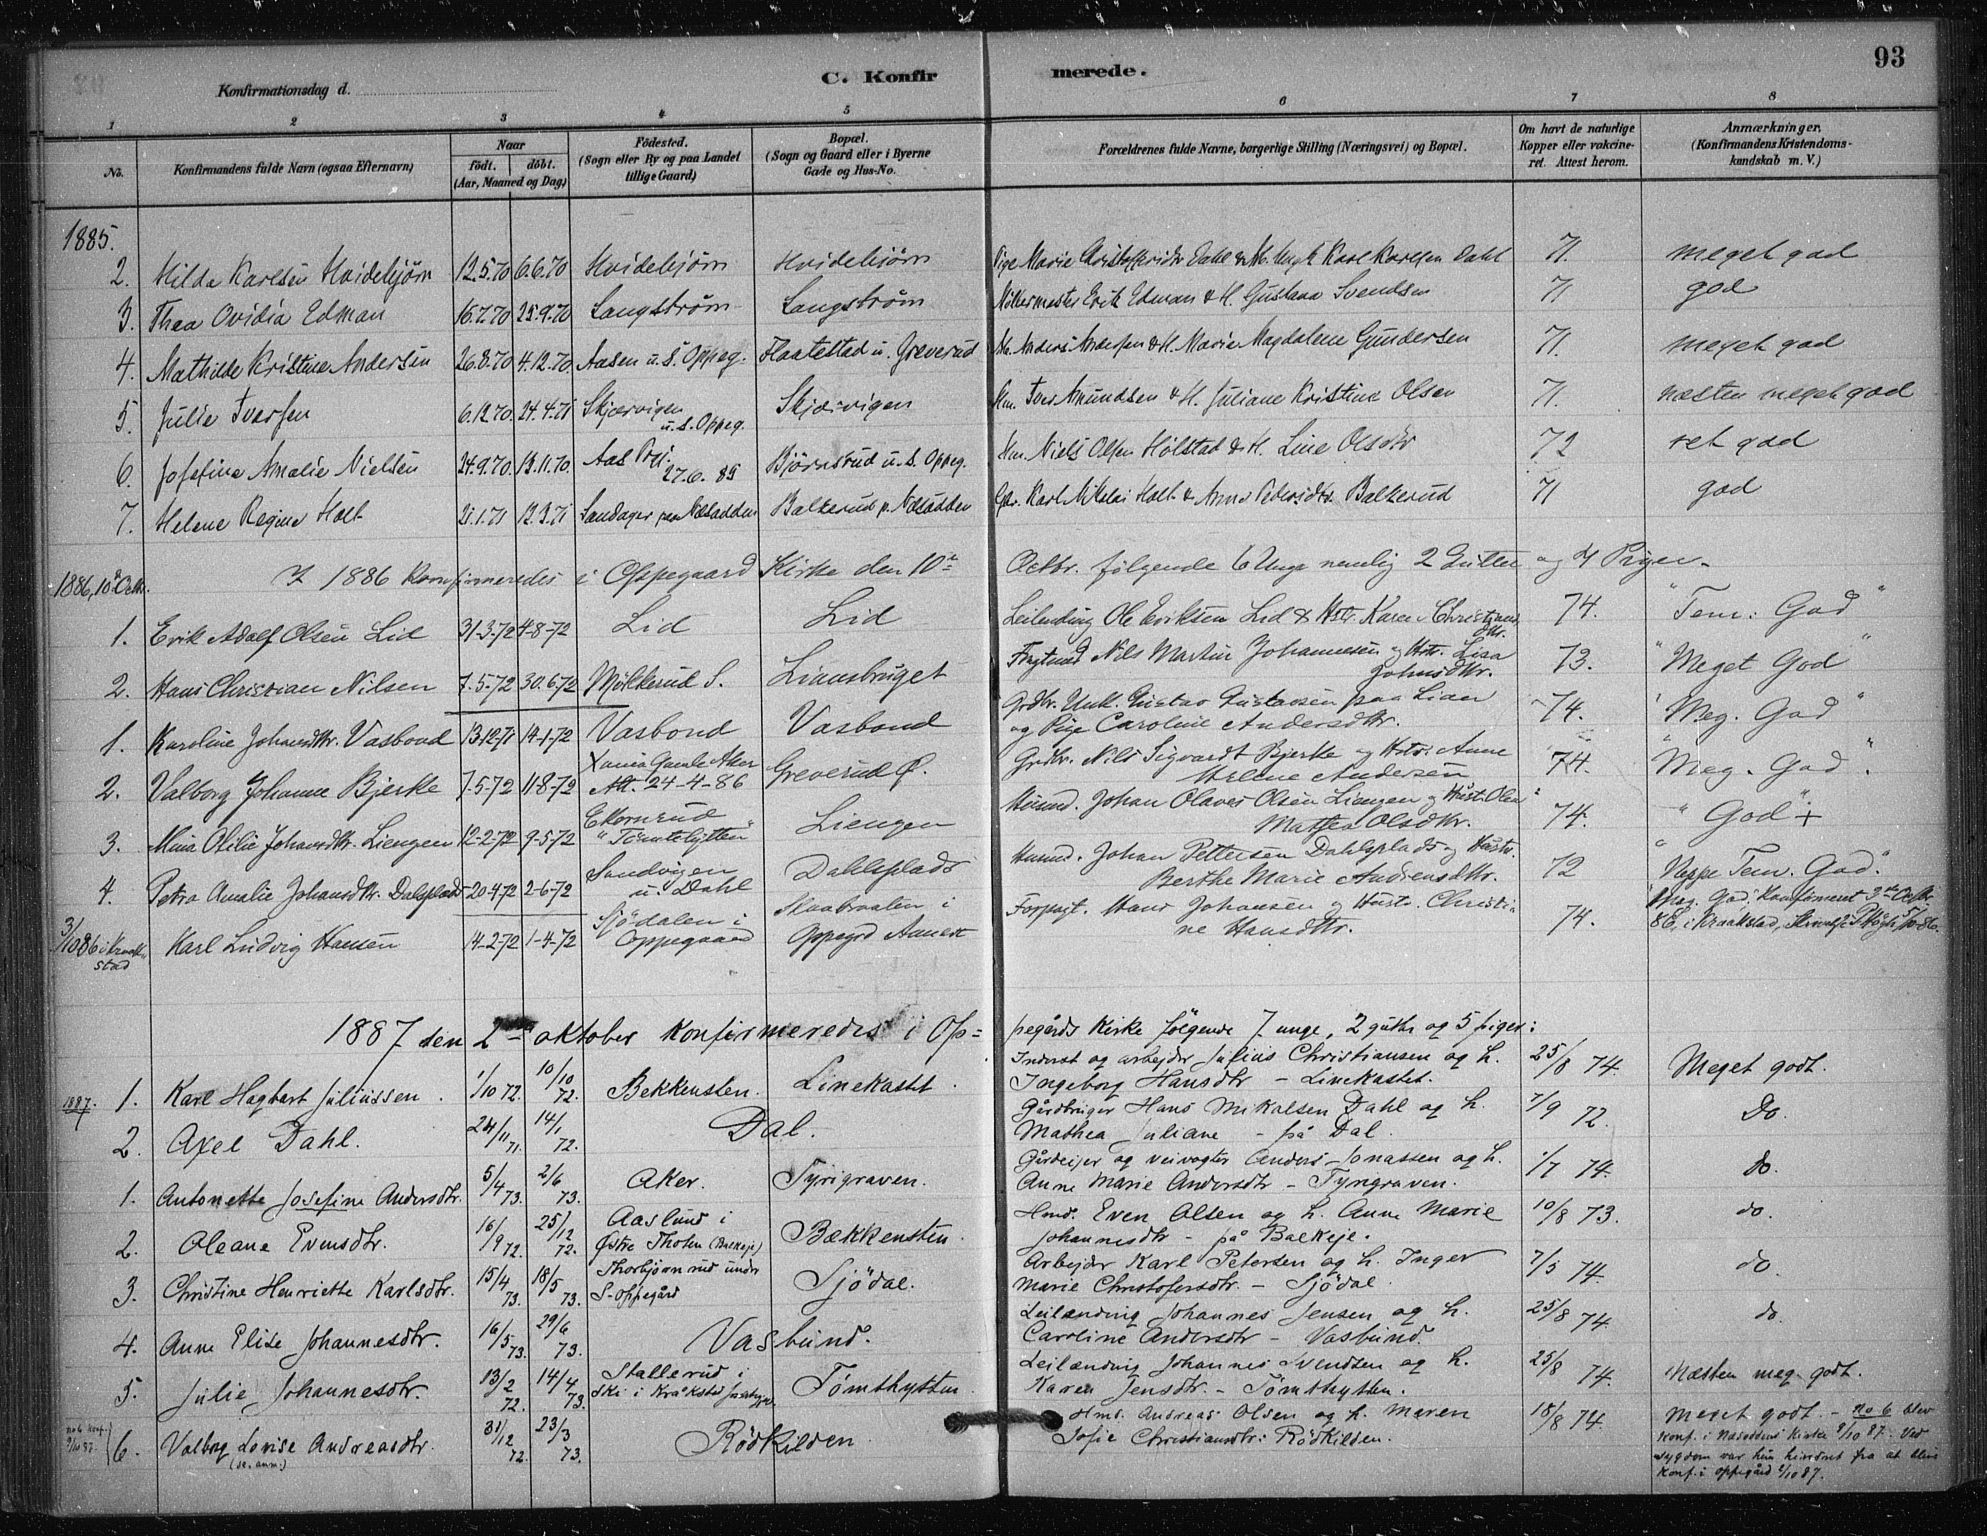 93
C. Konfirmerede.
Konfirmationsdag d.
1 2 3 4 5 6 7 8
No. Konfirmandens fulde Navn (ogsaa Efternavn) Naar født. døbt. (Aar, Maaned og Dag) Fødested. (Sogn eller By og paa Landet tillige Gaard) Bopæl. (Sogn og Gaard eller i Byerne Gade og Hus-No.) Forældrenes fulde Navne, borgerlige Stilling (Næringsvei) og Bopæl. Om havt de naturlige Kopper eller vaccineret. Attest herom. Anmærkninger. (Konfirmandens Kristendomskundskab m. V.)
1885.
2. Hilda Karlsen Hvidebjørn 12.5.70 6.6.70 Hvidebjørn Hvidebjørn Pige Marie Dahl Karl Karlsen Dahl 71. meget god
3. Thea Ovidia Edman 16.7.70 25.9.70 Langstrøm Langstrøm Erik Edman & H. Gustava Svendsen 71 god
4. Mathilde Kristine Andersen 26.8.70 4.12.70 Aasen u. S. Oppeg. Flaatestad u. Greverud Anders Andersen & H. Marie Magdalene Gundersen 71. meget god
5. Julie Iversen 6.12.70 24.4.71 Skjærvigen u. S. Oppeg. Skjærvigen Hm. Iver Amundsen & H. Juliane Kristine Olsen 71. næsten meget god
6. Josefine Amalie Nielsen 24.9.70 13.11.70. Aas 27.6.85 Bjørnsrud u. S. Oppeg. Hm. Niels Olsen Holstad & H. Line Olsdtr 72 ret god
7. Helene Regine Holt 21.1.71 12.3.71 Sandager paa Næsodden Balkerud p. Næsodden Karl Nikolai Holt & Anne Pedersdtr. Balkerud 71 god
1886, 10de Octbr. I 1886 konfirmeredes i Oppegaard Kirke den 10de Octbr. følgende 6 Unge nemlig 2 Gutter og 4 Piger.
1. Erik Adolf Olsen Lid 31-3-72 4-8-72 Lid Lid Leilending Ole Eriksen Lid & Hstr. Karen Christiansdtr. 74. "Tem: God"
2. Hans Christian Nilsen 7-5-72 30.6.72 Mølkerud S. Liansbruget Nils Martin Johannesen og Hstr. Lisa Johnsdtr. 73. "Meget God"
1. Karoline Johansdtr. Vasbond 13-12-71 14-1-72 Vasbond Vasbond Grdbr. Unk. Gustav Gustavsen paa Lian og Pige Caroline Andersdtr. 74. "Meg. God"
2. Valborg Johanne Bjerke 7-5-72 11-8-72 Xania Gamle Aker Att. 24-4-86 Greverud Ø. Grdbr. Nils Sigvardt Bjerke og Hstr. Anne Helene Andersen 74. "Meg. God".
3. Mina Otilie Johansdtr. Liengen 12-2-72 9-5-72 Ekornrud "Tømtehytten" Liengen Husmd. Johan Olaves Olsen Liengen og Hust. Olea Mathea Olsdtr. 74. "God" +
4. Petra Amalie Johansdtr. Dalsplads 20-4-72 2-6-72 Sandvigen u. Dahl Dahlsplads Husmd. Johan Pettersen Dahlsplads og Hustr. Berthe Marie Andreasdtr. 72 "Neppe Tem. God."
3/10 86 i Kraakstad Karl Ludvig Hansen 14-2-72 1-4-72 Sjødalen i Oppegaard Slaabraaten i Oppegrd Annex Forpagt. Hans Johansen og Hustr. Christine Hansdtr. 74. "Meg. God" Konfirmeret 3die Octbr. 86, i Kraakstad
1887 den 2den oktober konfirmeredes i Oppegårds kirke følgende 7 unge, 2 gutter og 5 piger:
1887. 1. Karl Hagbart Juliussen. 1/10 72. 10/10 72. Bekkensten. Linekastet. Inderst og arbejder Julius Christiansen og h. Ingeborg Hansdtr – Linekastet. 25/8 74. Meget godt.
2. Axel Dahl. 24/11 71. 14/1 72. Dal. Gårdbruger Hans Mikalsen Dahl og h. Mathea Juliane – på Dal. 7/9 72. Do.
1. Antonette Josefine Andersdtr. 5/4 73. 2/6 73. Aker. Tyrigraven. Gårdeijer og veivogter Anders Jonassen og h. Anne Marie Andersdtr – Tyrigraven. 1/7 74. do.
2. Oleane Evensdtr. 16/9 72. 25/12 72. Aaslund i Østre Thoten (Balkeje) Bækkensten. Hmd. Even Olsen og h. Anne Marie Johannesdtr – på Balkeje. 10/8 73. do.
3. Christine Henriette Karlsdtr. 15/4 73. 18/5 73. Thorbjørnrud under S-Oppegård Sjødal. Arbejder Karl Petersen og h. Inger Marie Christofersdtr. – Sjødal. 7/5 74. do
4. Anne Elise Johannesdtr. 16/5 73. 29/6 73. Vasbund. Leilænding Johannes Jensen og h. Caroline Andersdtr – Vasbund. 25/8 74. do.
5. Julie Johannesdtr. 13/2 72. 14/4 73. Stallerud i Ski i Kråkstad Tømthytten Leilænding Johannes Svendsen og h. Karen Jensdtr. – Tømthytten. 25/8 74. Næsten meg. godt.
no 6 konf. 9/10 87. 6. Valborg Lovise Andreasdtr. (se. anm.) 31/12 72. 23/3 73. Rødkilden Hmd. Andreas Olsen og h. Maren Sofie Christiansdtr: Rødkilden. 18/8 74 Meget godt. – no 6 blev konf. i Næsoddens kirke 9/10 87. Ved sygdom var hun hindret fra at blive konf. i Oppegård 2/10 87.